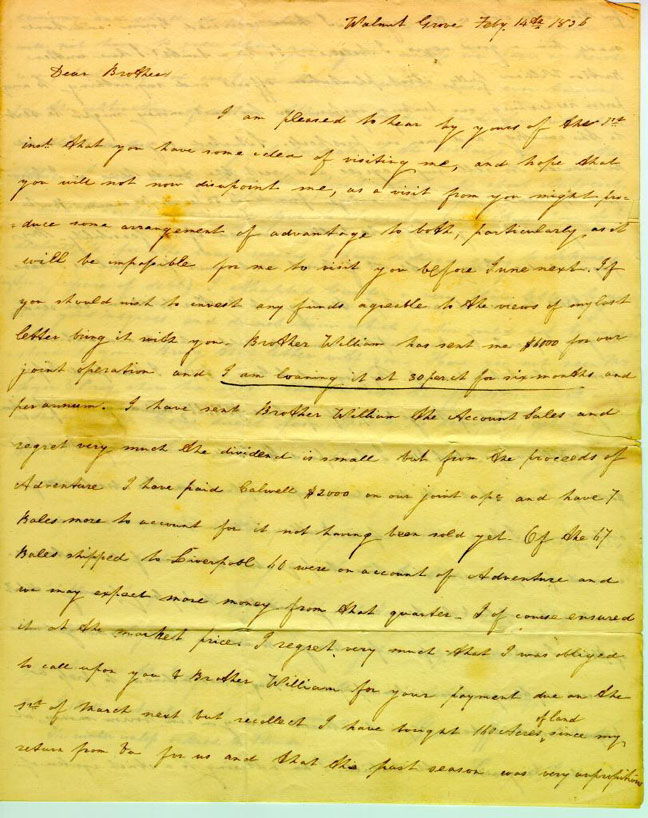 Walnut Grove Feby. 14th 1836
Dear Brother
I am pleased to hear by yours of the 1st
inst. that you have some idea of visiting me, and hope that
you will not now disapoint me, as a visit from you might pro-
-duce some arrangement of advantage to both, particularly as it
will be impossible for me to visit you before June next. If
you should wish to invest any funds agreable to the views of my last
letter bring it with you. Brother William has sent me $6000 for our
joint operation and I am loaning it at 30 per ct for six months and
per annum. I have sent Brother William the Account Sales and
regret very much the dividend is small but from the proceeds of
Adventure I have paid Calwell $2000 on our joint and have 7
Bales more to account for it not having been sold yet. Of the 47
Bales shipped to Liverpool 40 were on account of Adventure and
we may expect more money from that quarter - I of course ensured
it at the market price. I regret very much that I was obliged
to call upon you & Brother William for your payment due on the
1st of March next but recollect I have bought 160 Acres of land since my
return from Va for us and that the past season was very unpropitious